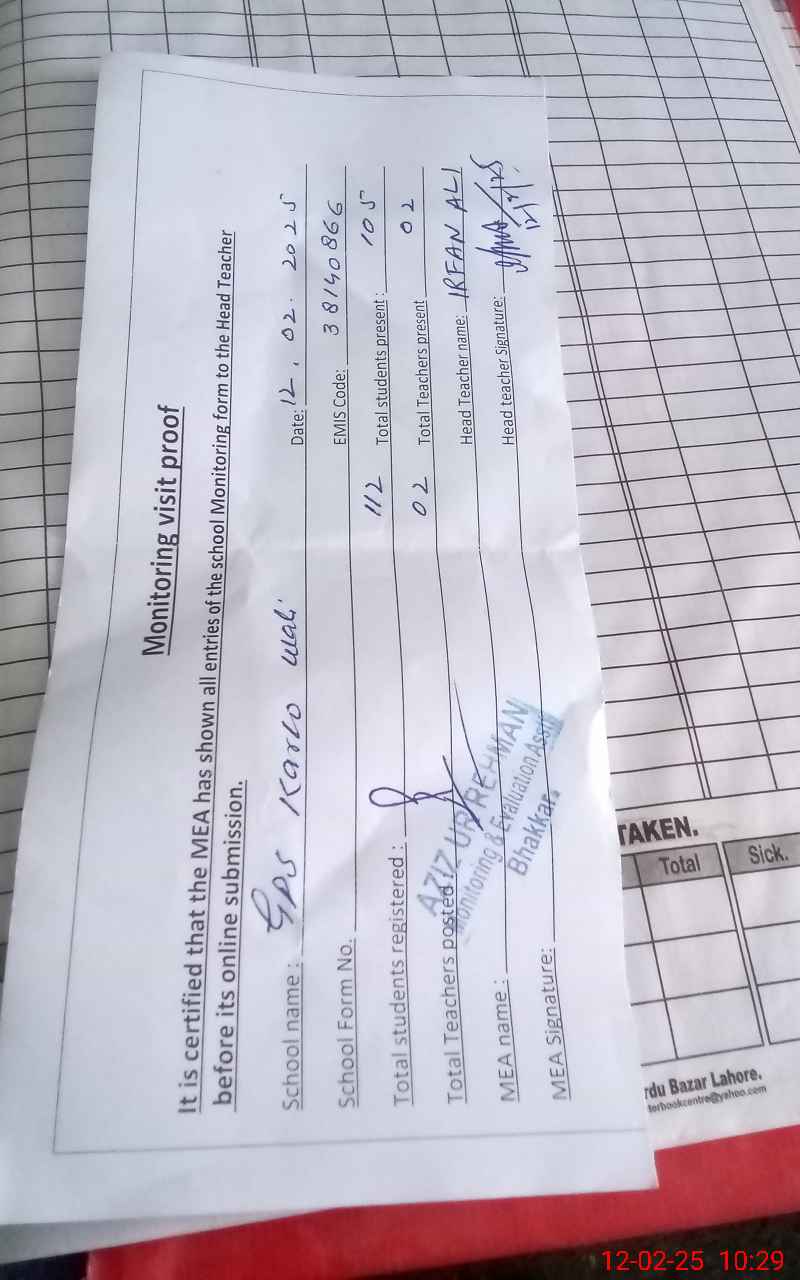 Monitoring visit proof
It is certified that the MEA has shown all entries of the school Monitoring form to the Head Teacher
before its online submission.
School name : GPS Karlo Wali Date: 12.02.2025
School Form No. EMIS Code: 38140866
Total students registered : 112 Total students present : 105
Total Teachers posted 02 Total Teachers present 02
MEA name : Head Teacher name: IRFAN ALI
MEA Signature: Head teacher Signature: 12/2/25
AZIZ UR REHMAN
Monitoring & Evaluation Asstt
Bhakkar.
TAKEN.
Total Sick.
rdu Bazar Lahore.
terbookcentre@yahoo.com
12-02-25 10:29